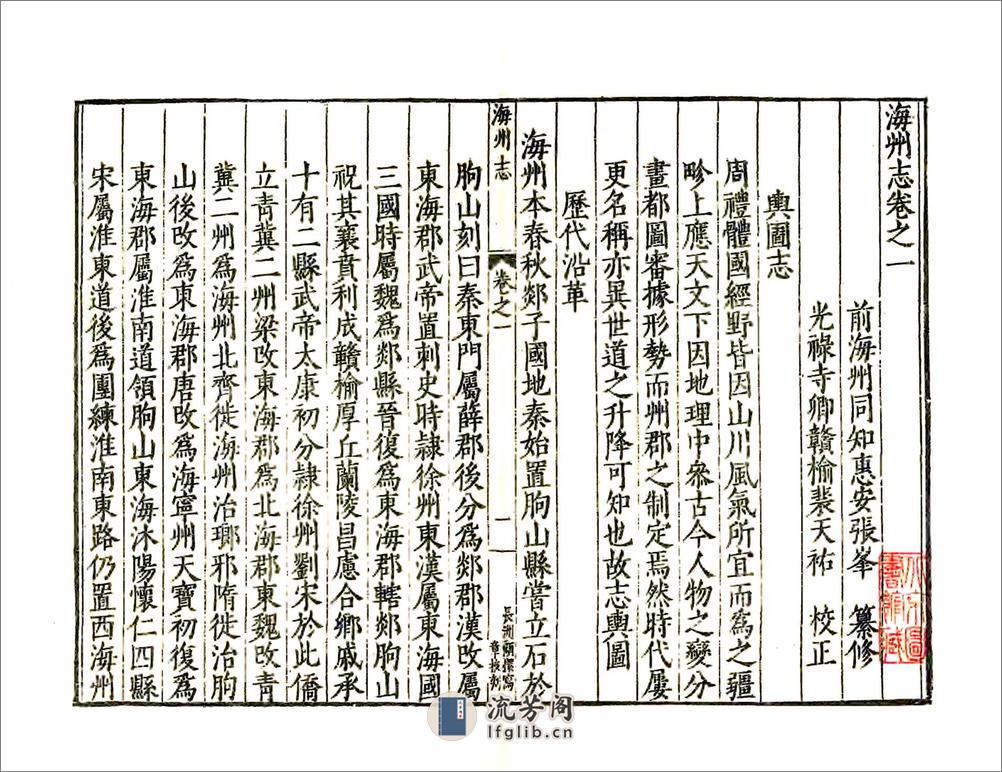 海州志卷之一
前海州同知惠安張峯 纂修
光祿寺卿贛榆裴天祐 校正
輿圖志
周禮體國經野皆因山川風氣所宜而爲之疆
畛上應天文下因地理中叅古今人物之變分
畫都圖審據形勢而州郡之制定焉然時代屢
更名稱亦異世道之升降可知也故志輿圖
歷代沿革
海州本春秋郯子國地秦始置朐山縣嘗立石於
海州志
卷之一
一
長洲顧㯶寫
章掖刻
朐山刻曰秦東門屬薛郡後分爲郯郡漢改屬
東海郡武帝置刺史時隸徐州東漢屬東海國
三國時屬魏爲郯縣晉復爲東海郡轄郯朐山
祝其襄賁利成贛榆厚丘蘭陵昌慮合鄉戚承
十有二縣武帝太康初分隸徐州劉宋於此僑
立青冀二州梁改東海郡爲北海郡東魏改青
冀二州爲海州北齊徙海州治瑯邪隋徙治朐
山後改爲東海郡唐改爲海寧州天寶初復爲
東海郡屬淮南道領朐山東海沐陽懷仁四縣
宋屬淮東道後爲團練淮南東路仍置西海州
流芳阁
lfglib.cn